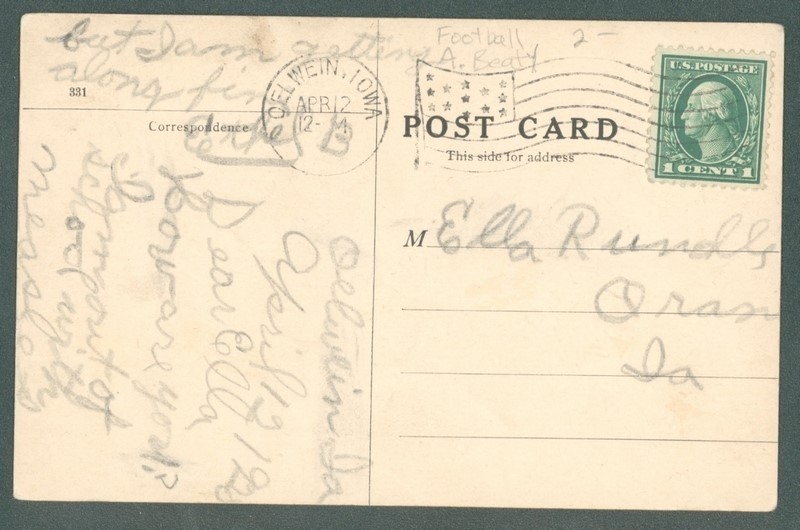 Football 2-
A. Beaty
U.S. POSTAGE
1 CENT 1
OELWEIN, IOWA
APR 12
12- M
331
Correspondence
POST CARD
This side for address
M Ella Rundle
Oran
Ia
Oelwein Ia
April 12
Dear Ella,
How are you?
I am out of
school with
measles
but I am getting
along fine
B